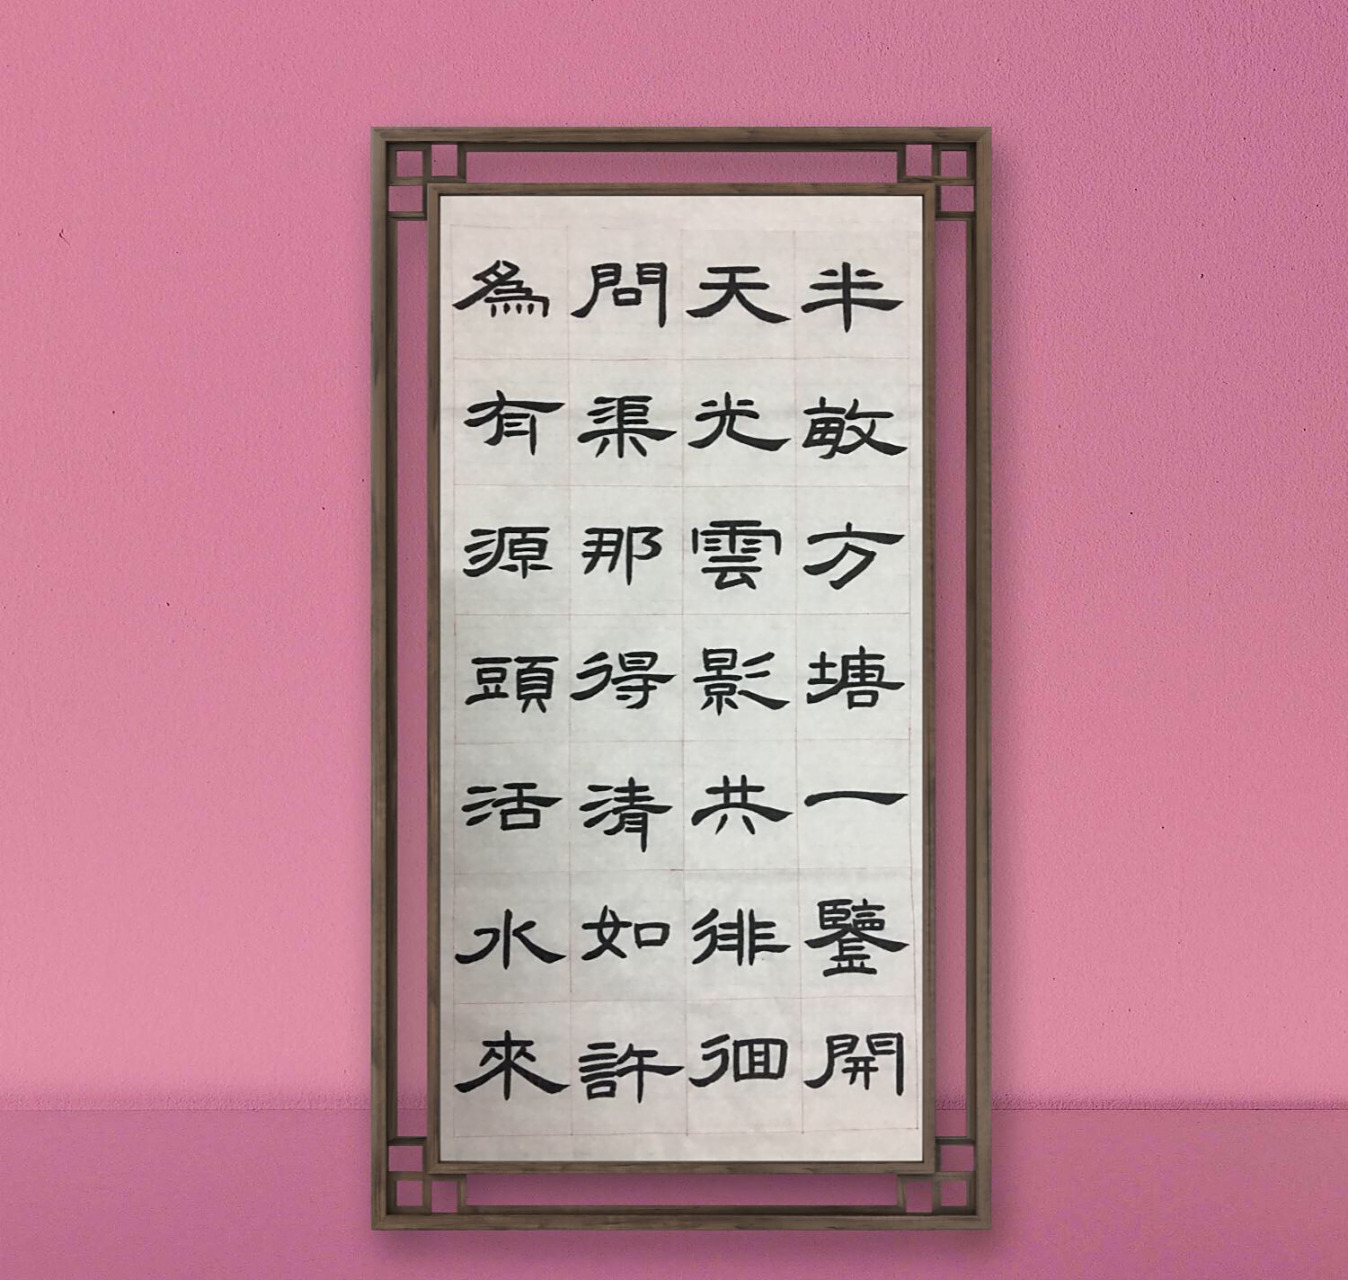 半畝方塘一鑒開
天光雲影共徘徊
問渠那得清如許
為有源頭活水來